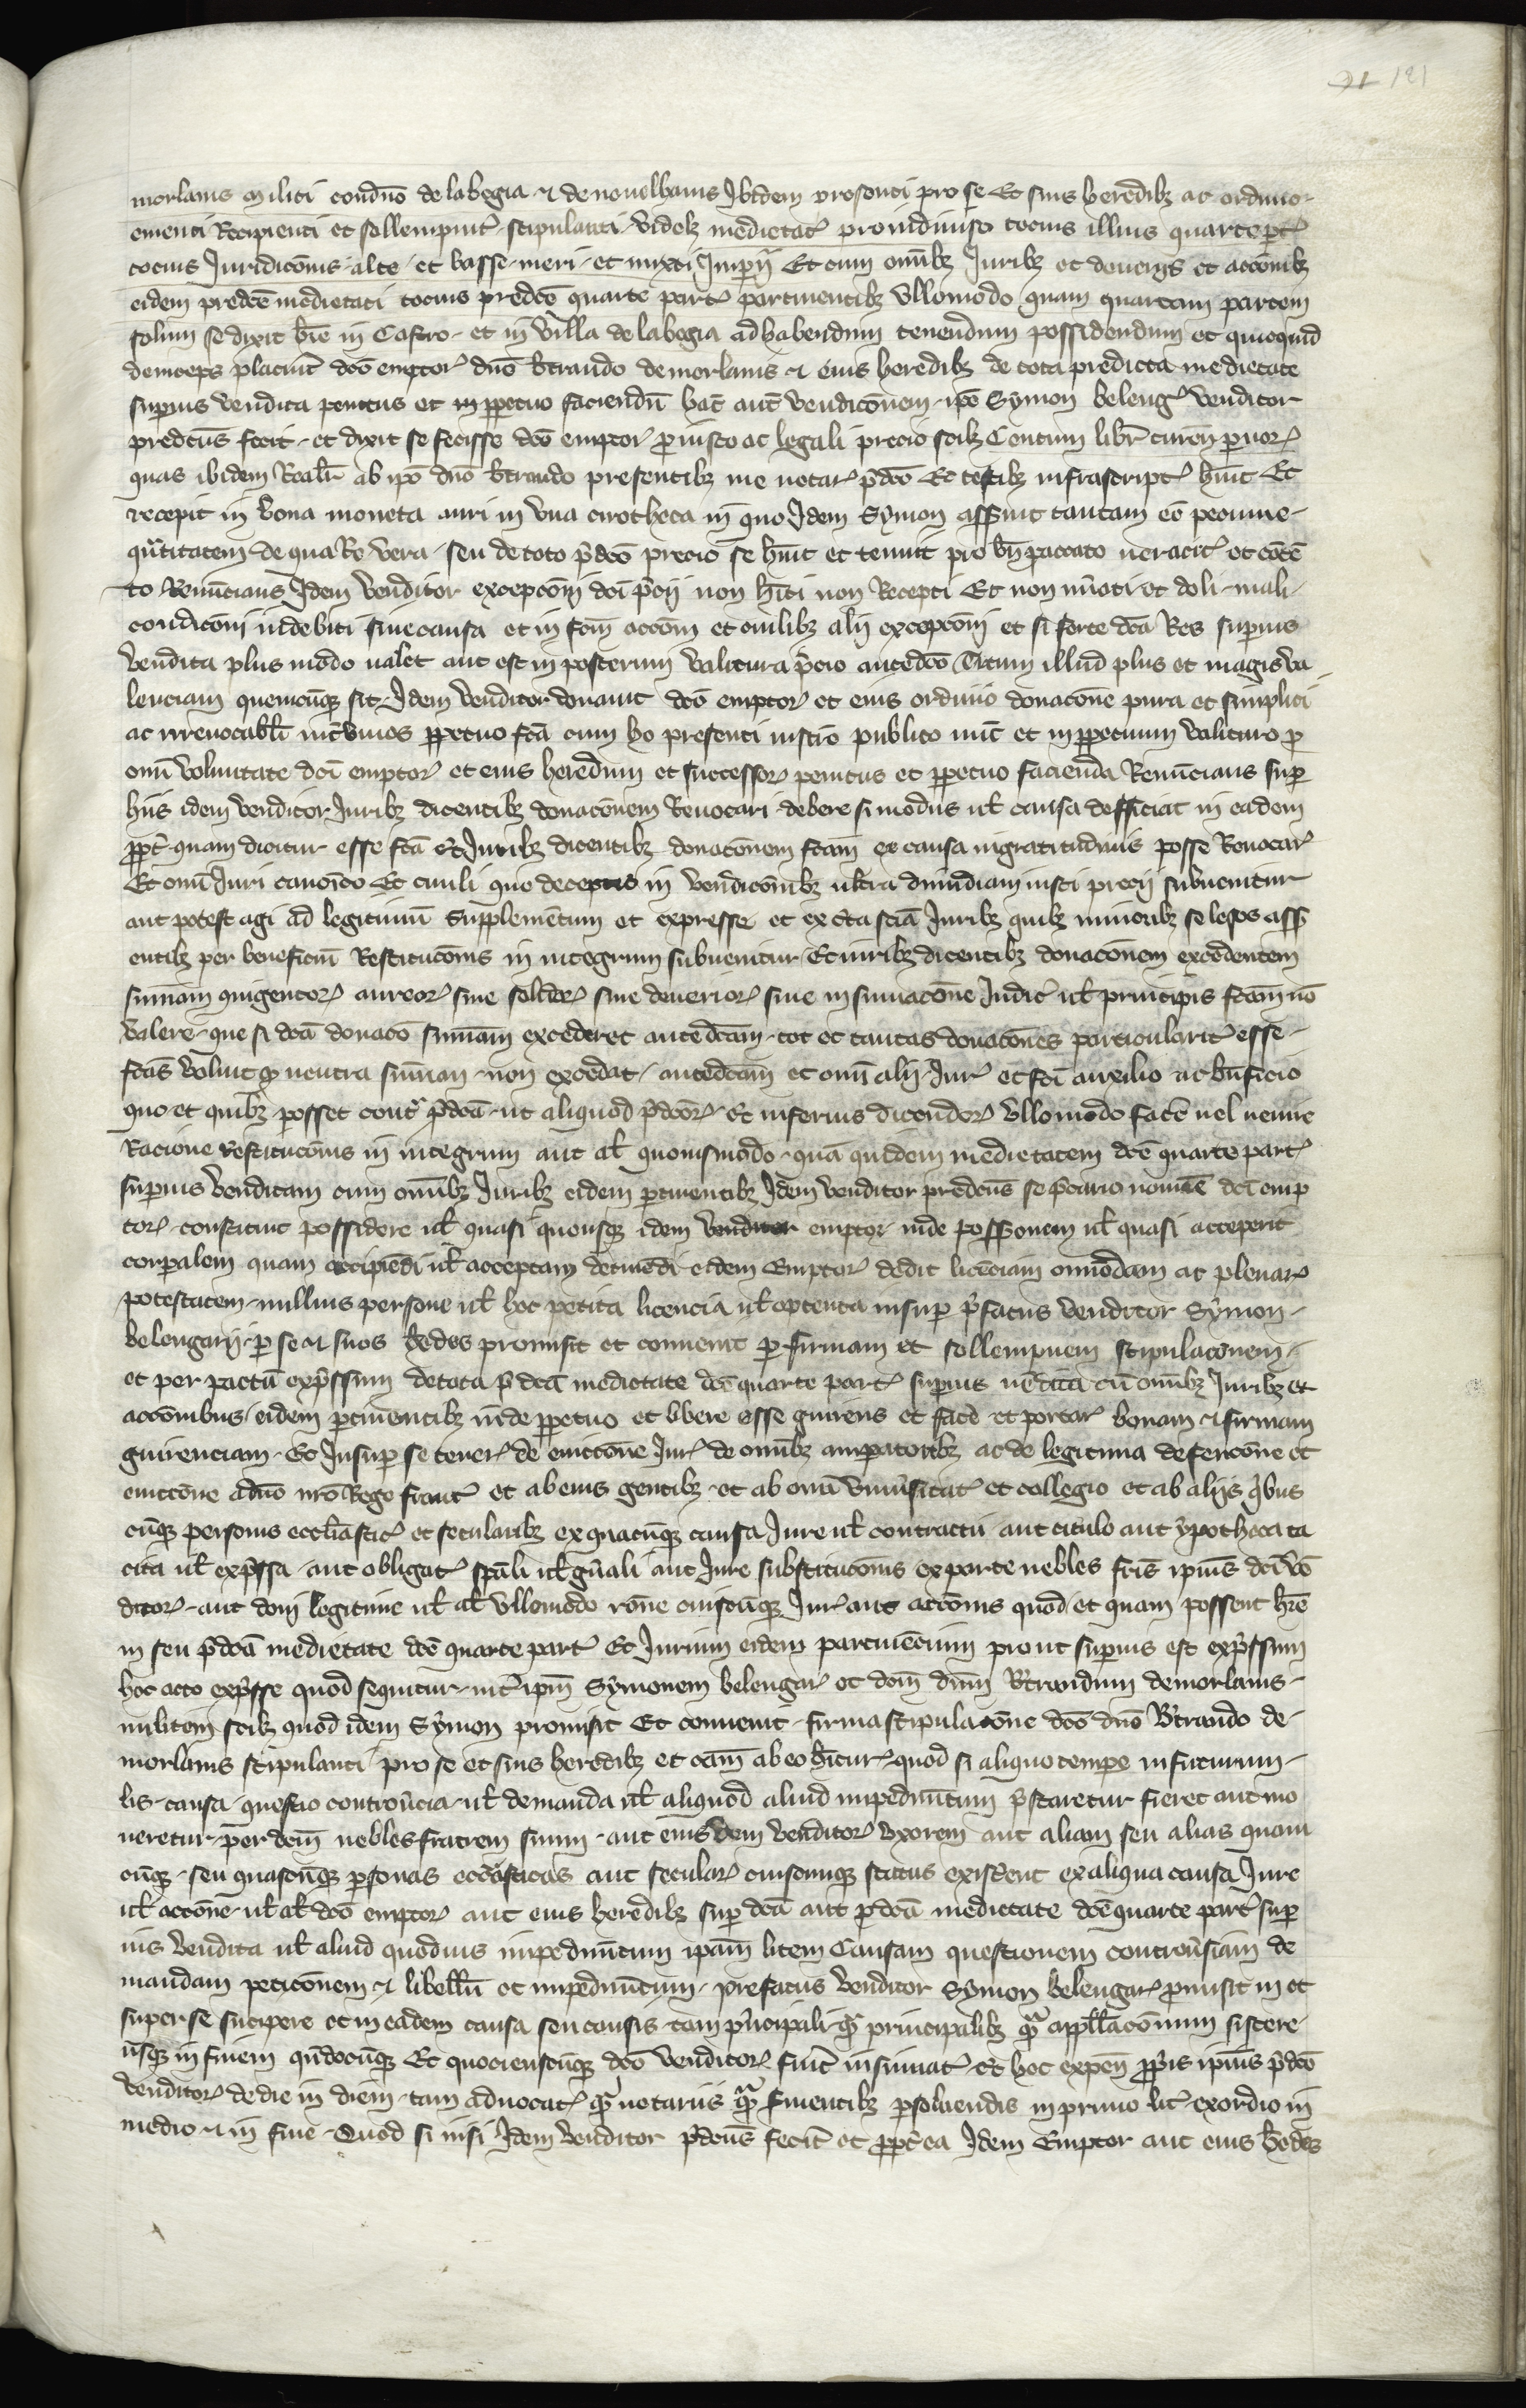 121
morlanis militi condño de labegia & de novelhanis Ibidem presenti pro se Et suis heredibȝ ac ordinio
ementi Recipienti et sollempnit stipulanti videlȝ medietat̃ pro indiviso tocius illius quarte pt̃
tocius Iuridicõnis alte et basse meri et mixti Imperij Et cum om̃ibȝ Iuribȝ et deverijs et acc̃onibȝ
eidem predc̃e medietati tocius predc̃e quarte part̃ pertinentibȝ ullomodo quam quartam partem
solum se dixit hr̃e in Castro et in villa de labegia ad habendum tenendum possidendum et quicquid
deinceps placuit dc̃o emptor̃ dño Bt̃rando de morlanis & eius heredibȝ de tota predicta medietate
superius vendita penitus et inperpetuo faciendũ hac̃ aut̃ vendic̃onem ip̃e Symon beleng̃ venditor
predc̃us fecit et dixit se fecisse dc̃o emptor̃ p iusto ac legali precio scilȝ Centum libr̃ turoñ pvor̃
quas ibidem Realit̃ ab ip̃o dño Bt̃rando presentibȝ me notar̃ p̃dc̃o Et testibȝ infrascript̃ hũit Et
recepit in bona moneta auri in una cirotheca in quo Idem Symon asseruit tantam eẽ peccunie
qũtitatem de qua Re vera seu de toto p̃dc̃o precio se hũit et tenuit pro bñ paccato veracit̃ et cõtẽ
to Renũcians Idem venditor excepc̃oni dc̃i p̃cij non hĩti non Recepti Et non nũati et doli mali
condic̃oni indebiti sine causa et in fc̃m acc̃oni et om̃ibȝ alij excepc̃oni et si forte dc̃a Res superius
vendita plus modo valet aut est in posterum valitura p̃cio antedc̃o Totum illud plus et magis va
lenciam quemcũqȝ sit Idem venditor donavit dc̃o emptor̃ et eius ordinio donac̃one pura et simplici
ac irrevocabl̃i int̃ vivos ppetuo fc̃a cum ho presenti instr̃o publico nũc et inperpetuum valituro p
om̃i voluntate dc̃i emptor̃ et eius heredum et successor̃ penitus et ppetuo facienda Renũcians sup
hiis idem venditor Iuribȝ dicentibȝ donac̃onem Revocari debere si modus ul̃ causa defficiat in eadem
ppt̃ quam dicitur esse fc̃a Et Iuribȝ dicentibȝ donac̃onem fc̃am ex causa ingratitudinis posse Revocar̃
Et om̃i Iuri canoĩco Et civili quo deceptis in vendic̃onibȝ ultra dimidiam iusti precij subvenitur
aut potest agi ad legitimũ Supplementum et expresse et ex c̃ta sciã Iuribȝ quibȝ minoribȝ se lesos ass̃
entibȝ per beneficiũ Restituc̃onis in integrum subvenitur Et iuribȝ dicentibȝ donac̃onem excedentem
sum̃am quigentor̃ aureor̃ sive solidor̃ sive denerior̃ sine insinuac̃one Iudic̃ ul̃ principis fc̃am nõ
valere que si dc̃a donac̃o sum̃am excederet antedc̃am tot et tantas donac̃ones particularit̃ esse
fc̃as voluit qȝ neutra sum̃am non excedat antedc̃am et om̃i alij Iur̃ et fc̃i auxilio ac bñficio
quo et quibȝ posset cont̃ p̃dc̃a ut aliquod p̃dc̃or̃ Et inferius dicendor̃ ullomodo facẽ vel venire
Racione restituc̃onis in integrum aut al̃ quovismodo quã quidem medietatem dc̃e quarte part̃
superius venditam cum om̃ibȝ Iuribȝ eidem ptinentibȝ Idem venditor predc̃us se p̃cario nomine dc̃i emp
tor̃ constituit possidere ul̃ quasi quousqȝ idem venditor emptor inde poss̃onem ul̃ quasi acceperit
corpalem quam accipiẽdi ul̃ acceptam detinẽdi eidem Emptor̃ dedit licẽciam omĩodam ac plenar̃
potestatem nullius persone ul̃ hoc petita licencia ul̃ optenta insup p̃fatus venditor Symon
belengarij p se & suos h̃edes promisit et convenit p firmam et sollempnem stipulac̃onem
et per pactũ exp̃ssum de tota p̃dc̃a medietate dc̃e quarte part̃ superius vẽdita cũ om̃ibȝ Iuribȝ et
acc̃onibus eidem ptinentibȝ inde ppetuo et libere esse guirens et facẽ et portar̃ bonam & firmam
guirenciam Et Insup se tener̃ de evicc̃one Iur̃ de om̃ibȝ amparatoribȝ ac de legitima defenc̃one et
evicc̃one a dño nr̃o Rege franc̃ et ab eius gentibȝ et ab om̃i uniṽsitat̃ et collegio et ab aliis q̃bus
cũqȝ personis eccl̃iastic̃ et secularibȝ ex quacũqȝ causa Iure ul̃ contractu aut titulo aut ypotheca ta
cita ul̃ exp̃ssa aut obligat̃ sp̃ali ul̃ gñali aut Iure substituc̃onis ex parte nebles fr̃is ipius dc̃i vẽ
ditor̃ aut doni legitime ul̃ al̃ ullomodo rõne cuiuscũqȝ Iur̃ aut acc̃onis quod et quam possent hr̃e
in seu p̃dc̃a medietate dc̃e quarte part̃ Et Iurium eidem pertinẽcium prout superius est exp̃ssum
hoc acto exp̃sse quod sequitur int̃ ipm̃ Symonem belengar̃ et dc̃m dñm Bt̃randum de morlanis
militem scilȝ quod idem Symon promisit Et convenit firma stipulac̃one dc̃o dño Bt̃rando de
morlanis stipulanti pro se et suis heredibȝ et cãm ab eo hĩtur̃ quod si aliquo tempe in futurum
lis causa questio controv̂cia ul̃ demanda ul̃ aliquod aliud impedimẽtum p̃staretur fieret aut mo
veretur per dc̃m nebles fratrem suum aut eiusdem venditor̃ uxorem aut aliam seu alias quam
cũqȝ seu quascũqȝ psonas eccl̃iasticas aut secular̃ cuiscumqȝ status existent ex aliqua causa Iure
ul̃ acc̃one ul̃ al̃ dc̃o emptor̃ aut eius heredibȝ sup dc̃a aut p̃dc̃a medietate dc̃e quarte part̃ sup
ius vendita ul̃ aliud quodvis impedimẽtum ipam̃ litem Causam questionem controv̂siam de
mandam petic̃onem & libellũ et impedimẽtum prefatus venditor Symon belengar̃ pmisit in et
super se sucipere et in eadem causa seu causis tam p̃ncipali q̃ principalibȝ q̃ appellac̃onum sistere
usqȝ in finem qñdocũqȝ Et quociensqũqȝ dc̃o venditor̃ fuit̃ insinuat̃ et hoc expeñ pp̃is ipius p̃dc̃o
venditor̃ de die in diem tam advocat̃ q̃ notariis q̃ finientibȝ psolvendis in primo lit̃ exordio in
medio & in fine Quod si nisi Idem venditor p̃dc̃us fecit̃ et ppt̃ea Idem Emptor aut eius h̃edes